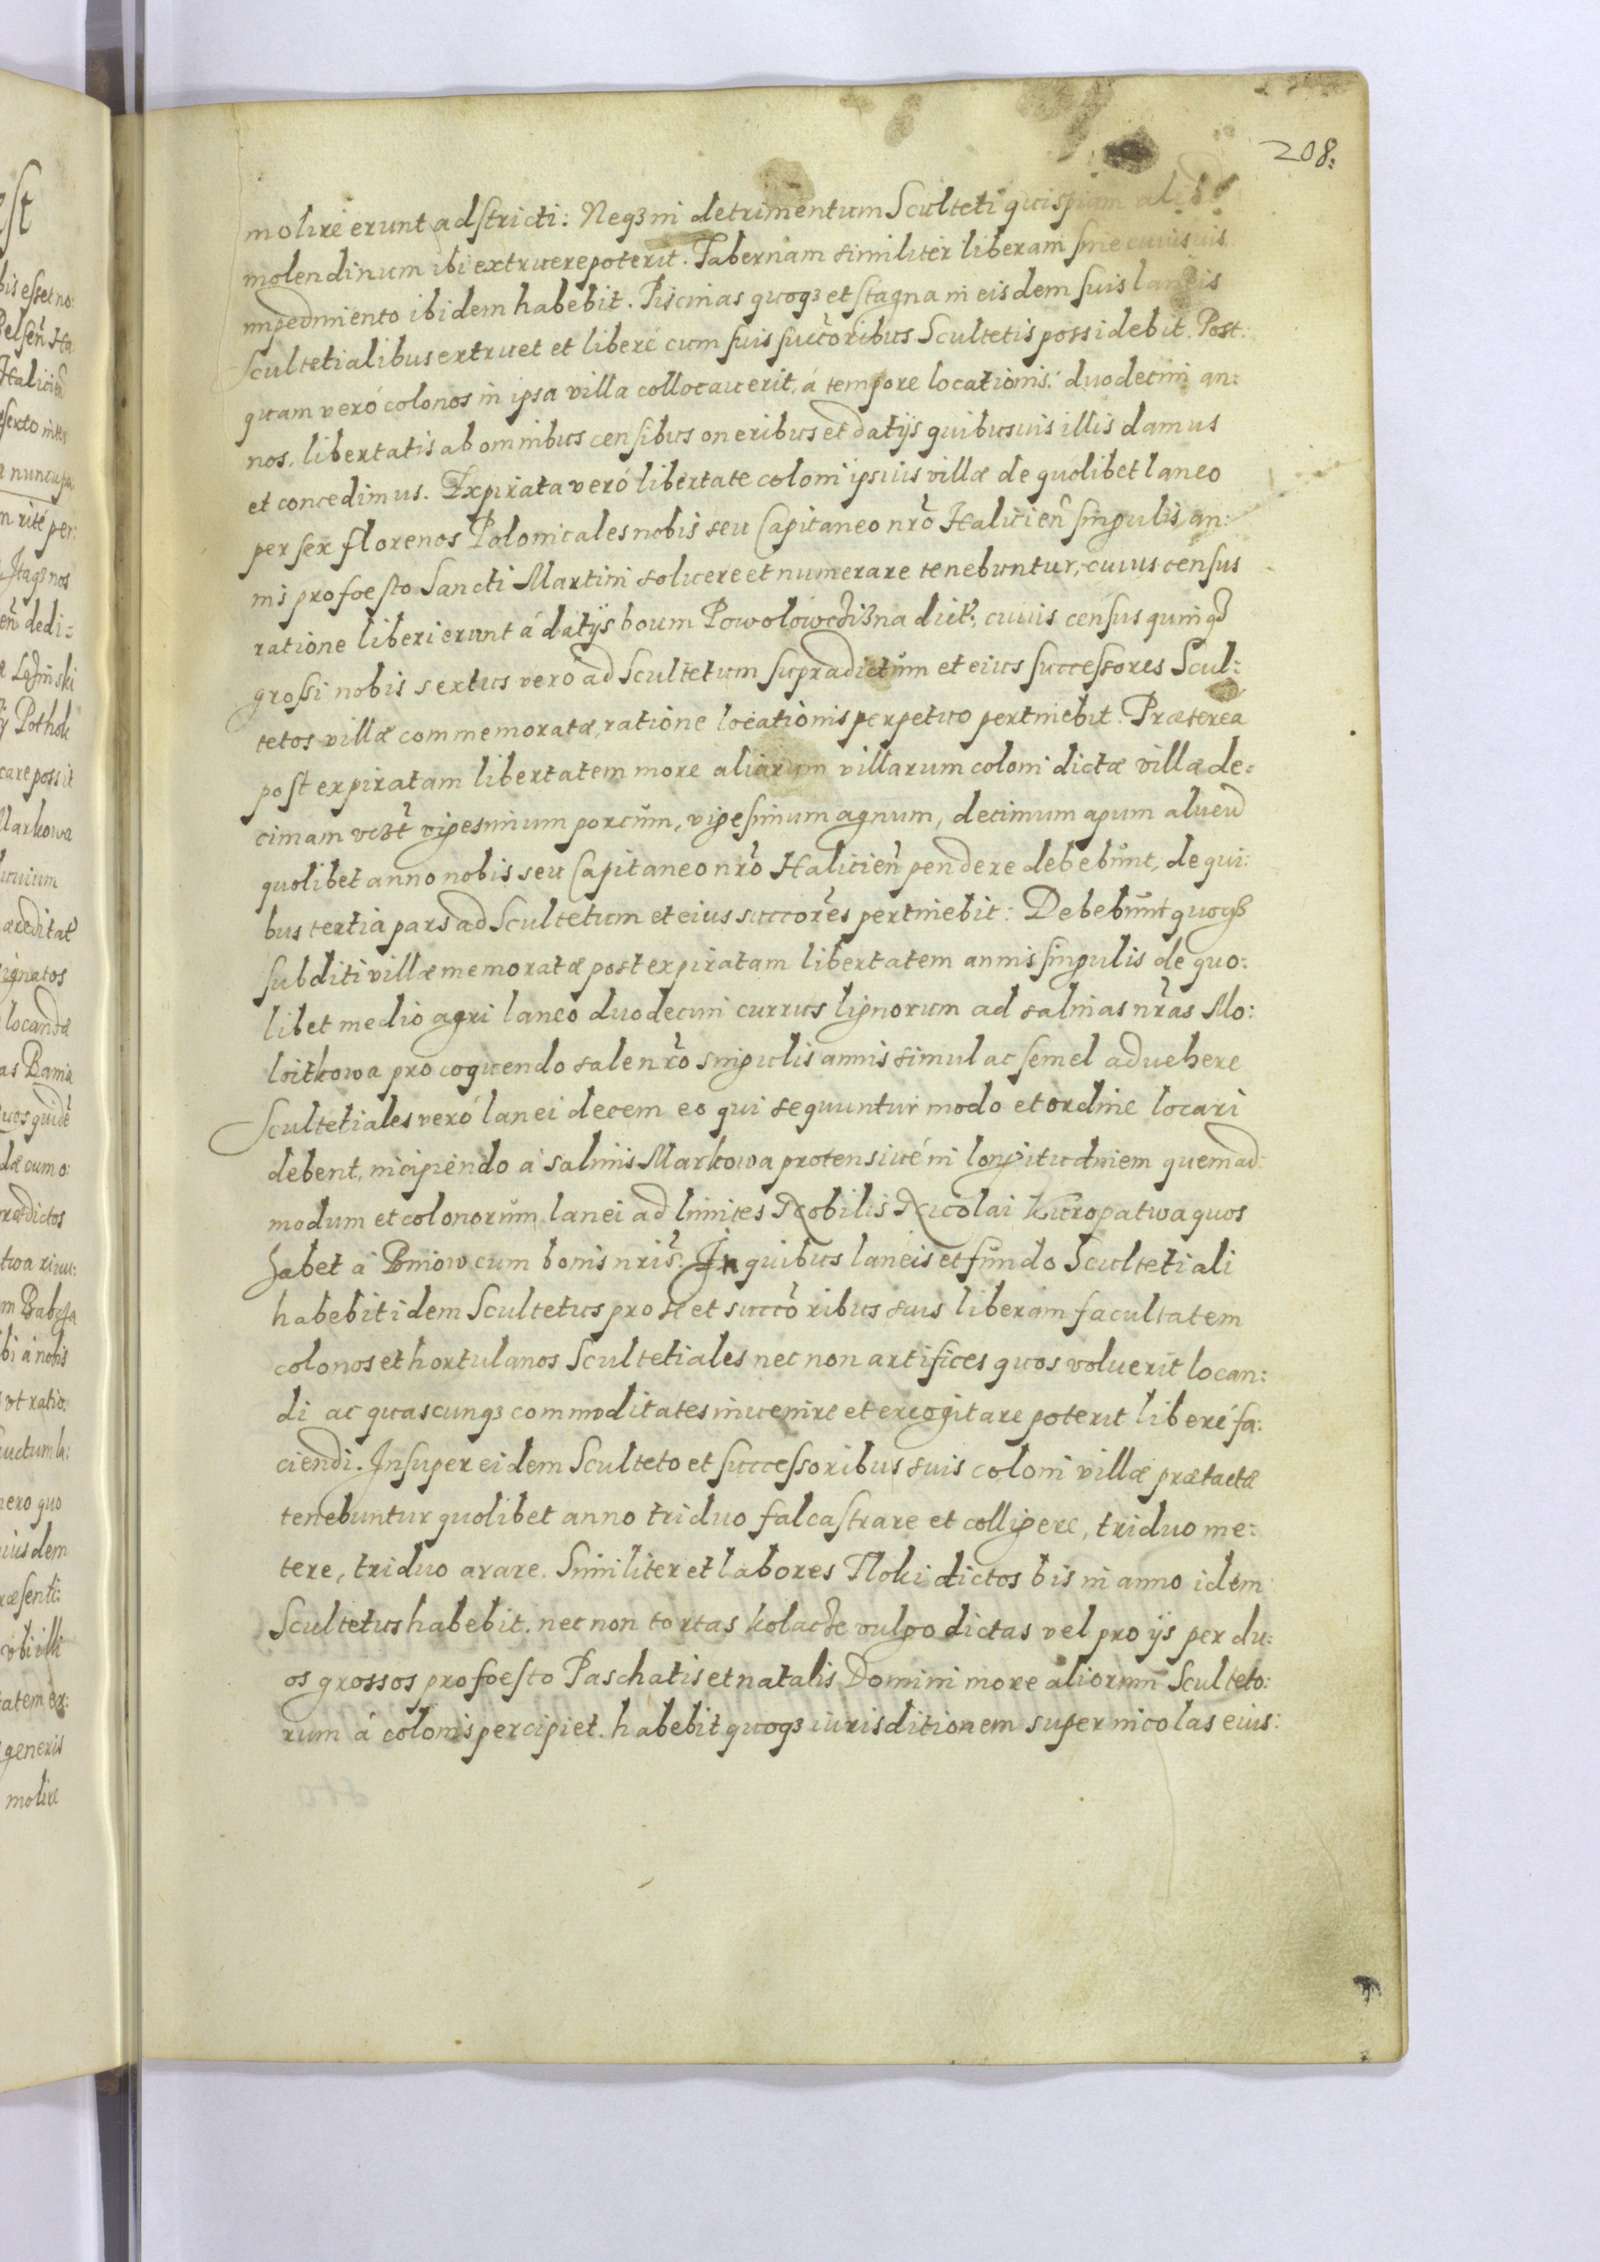 208.
molire erunt adstricti: Neqꝫ in detrimentum Sculteti quispiam
molendinum ibi extruere poterit. Tabernam similiter liberam sine cuiusuis
impedimento ibidem habebit. Piscinas quoqꝫ et stagna in eisdem suis laneis
Scultetialibus extruet et liberé cum suis succ̃oribus Scultetis possidebit. Post:
quam veró colonos in ipsa villa collocauerit, á tempore locationis, duodecim an:
nos, libertatis ab omnibus censibus oneribus et datijs quibusuis illis damus
et concedimus. Expirata veró libertate coloni ipsius villæ de quolibet laneo
per sex florenos Polonicales nobis seu Capitaneo nr̃o Halicieñ singulis an:
nis pro foesto Sancti Martini soluere et numerare tenebuntur, cuius census
ratione liberi erunt á datijs boum Powołowchiszna dict̃; cuius census quinqꝫ
grossi nobis sextus veró ad Scultetum supradictum et eius successores Scul:
tetos villæ commemoratæ, ratione locationis perpetuo pertinebit. Præterea
post expiratam libertatem more aliarum villarum coloni dictæ villæ de:
cimam vczt̃ vigesimum porcum, vigesimum agnum, decimum apum alueũ
quolibet anno nobis seu Capitaneo nr̃o Halicieñ pendere debebunt, de qui:
bus tertia pars ad Scultetum et eius succor̃es pertinebit: Debebunt quoqꝫ
subditi villæ memoratæ post expiratam libertatem annis singulis de quo:
libet medio agri laneo duodecim currus lignorum ad salinas nr̃as Mo:
loitkowa pro coquendo sale nr̃o singulis annis simul ac semel aduehere
Scultetiales veró lanei decem eo qui sequuntur modo et ordine locari
debent, incipiendo á salinis Markowa protensiué in longitudinem quemad:
modum et colonorum lanei ad limites Nobilis Nicolai Kuropatwa quos
habet á Bniow cum bonis nris̃. In quibus laneis et fundo Scultetiali
habebit idem Scultetus pro se et succõribus suis liberam facultatem
colonos et hortulanos Scultetiales nec non artifices quos voluerit locan:
di ac quascunqꝫ commoditates inuenire et excogitare poterit liberé fa:
ciendi. Insuper eidem Sculteto et successoribus suis coloni villæ prætactæ
tenebuntur quolibet anno triduo falcastrare et colligere, triduo me:
tere, triduo arare. Similiter et labores Tloki dictos bis in anno idem
Scultetus habebit. nec non tortas kolacze vulgo dictas vel pro ijs per du:
os grossos pro foesto Paschatis et natalis Domini more aliorum Sculteto:
rum á colonis percipiet. habebit quoqꝫ iurisditionem super incolas eius: